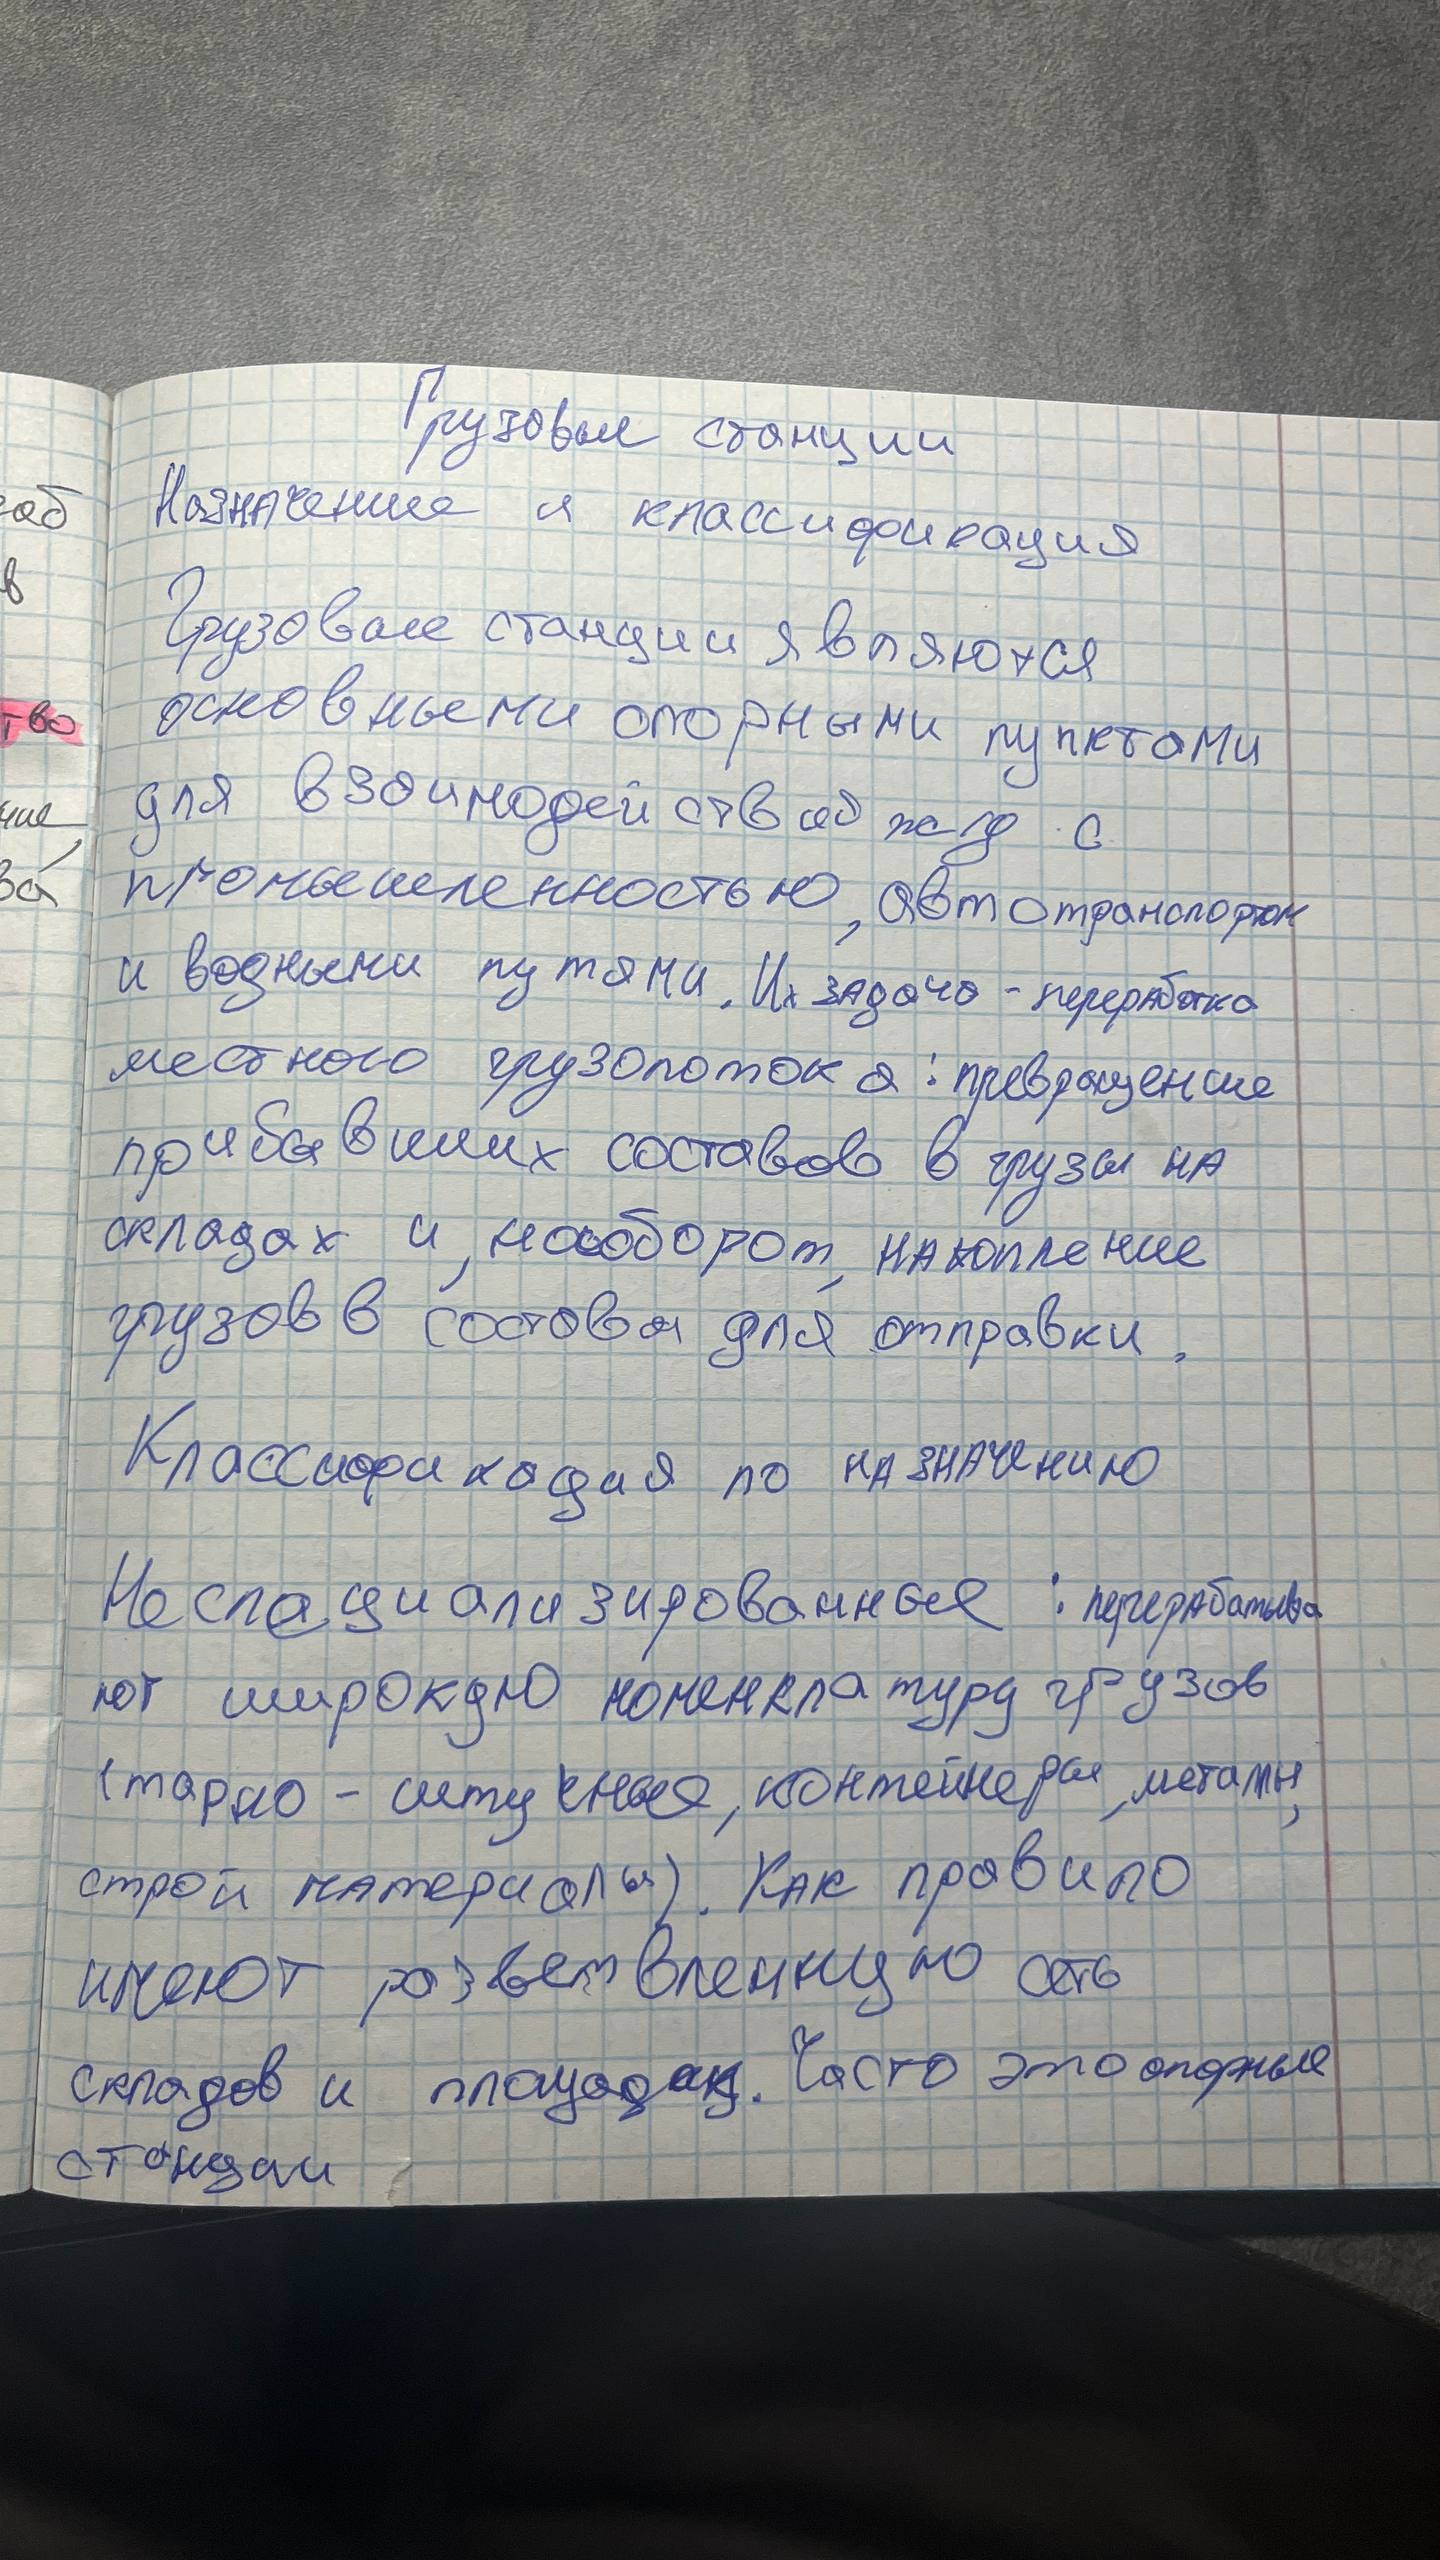 Грузовые станции
Назначение и классификация
Грузовые станции являются
основными опорными пунктами
для взаимодействия жд с
промышленностью, автотранспортом
и водными путями. Их задача - переработка
местного грузопотока: превращение
прибывших составов в грузы на
складах и, наоборот, накопление
грузов в составы для отправки.
Классификация по назначению
Неспециализированные: перерабатыва
ют широкую номенклатуру грузов
(тарно - штучные, контейнеры, металлы,
строй материалы). Как правило
имеют разветвленную сеть
складов и площадок. Часто это опорные
станции
аб
в
тво
ние,
ва